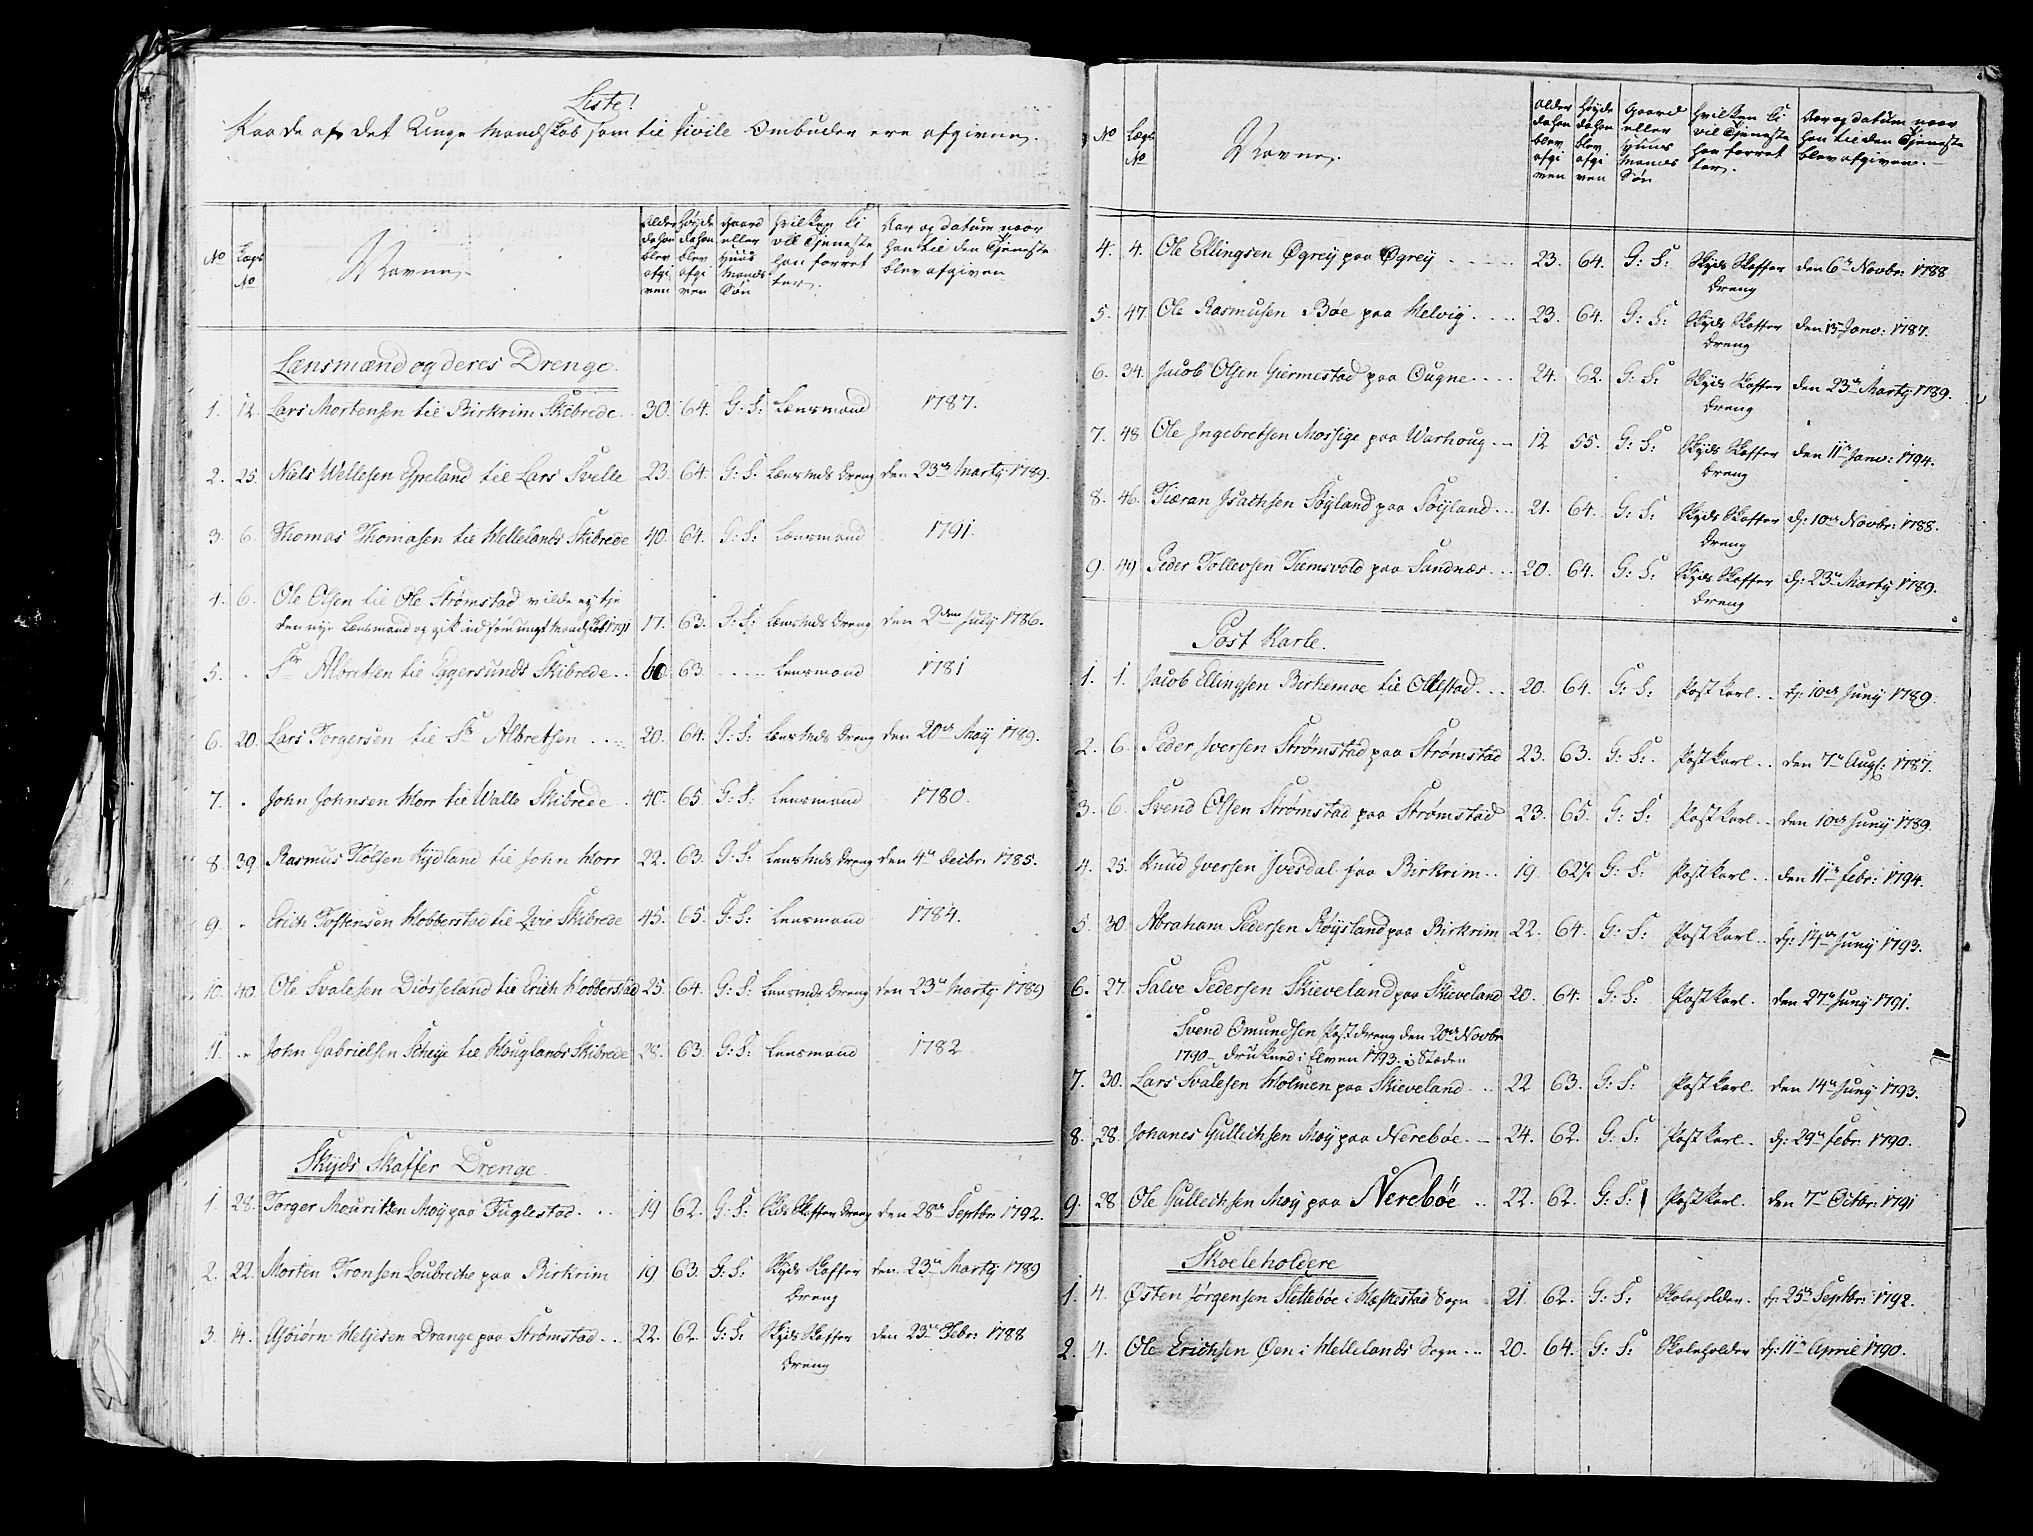 Liste!
Paa de af det Unge Mandskab som til Civile Ombuder ere afgivne.
No
Lægs No
Navne.
Alder da han blev afgiven
Høyde da han blev afgiven
Gaard eller Huus Mands Søn
Hvilken Civil Tjeneste han forretter.
Aar og datum naar han til den Tjeneste blev afgiven
Lænsmænd og deres Drenge.
1. 12. Lars Mortensen til Birkrim Skibrede. 30. 64. G: S: Lænsmand 1787.
2. 25. Niels Wellesen Epeland til Lars Svelle 23. 64. G: S: Lænsmds Dreng den 23de Martij 1789.
3. 6. Thomas Thomasen til Hellelands Skibrede 40. 64. G: S: Lænsmand 1791.
4. 6. Ole Olsen til Ole Strømstad vilde ey tje
den nye Lænsmand og gik ind som ungt Mandskab 1791 17. 63. G: S: Lænsmds Dreng den 2den July 1786.
5. . Sr Albretsen til Eggersunds Skibrede . . 60. 63. . . . . . Lensmand 1781
6. 20. Lars Torgersen til Sr Albretsen . . . . 20. 64. G: S: Lænsmds Dreng den 20de Maij 1789.
7. . John Johnsen Horr til Walle Skibrede . 40. 65. G: S: Lensmand 1780.
8. 39. Rasmus Tolsen Rydland til John Horr 22. 63. G: S: Lensmds Dreng den 4de Decbr: 1785.
9. . Erich Tostensen Hobberstad til Qvie Skibrede 45. 65. G: S: Lensmand 1784.
10. 40. Ole Svalesen Diösseland til Erich Hobberstad 25. 64. G: S: Lensmds Dreng den 23de Martij 1789
11. .. John Gabrielsen Scheje til Houglands Skibrede 28. 63. G: S: Lensmand 1782
Skyds Skaffer Drenge.
1. 28. Torger Mouritzen Moy paa Fuglestad. . . 19 62. G: S: Skyds Skaffer Dreng den 28de Septbr: 1792.
2. 22. Morten Tronsen Loubreche paa Birkrim 19 63. G: S: Skyds Skaffer den 23de Martij 1789
Dreng
3. 14. Asbiørn Heljesen Drange paa Strømstad. . . 22. 62. G: S: Skyds Skaffer den 23de Febr: 1788
Dreng
No
Lægs No
Navne.
Alder da han blev afgiven
Høyde da han blev afgiven
Gaard eller Huus Mands Søn
Hvilken Civil Tjeneste han forretter.
Aar og datum naar han til den Tjeneste blev afgiven.
4. 4. Ole Ellingsen Øgreij paa Øgreij . . . . 23. 64. G: S: Skyds Skaffer den 6te Novbr: 1788
Dreng
5. 47. Ole Rasmusen Bøe paa Helvig . . . . 23. 64. G: S: Skyds Skaffer den 15 Janv: 1787.
Dreng
6. 34. Jacob Olsen Giermestad paa Ougne . . . . 24. 62. G: S: Skyds Skaffer den 23de Martij 1789.
Dreng
7. 48 Ole Ingebretsen Mossige paa Warhoug . . 12 55. G: S: Skyds Skaffer den 11te Janv: 1794.
Dreng
8. 46. Tiæran Isachsen Søyland paa Søyland . . . 21. 64. G: S: Skyds Skaffer d: 10de Novbr: 1788.
Dreng
9. 49 Peder Tollevsen Tiemsvold paa Sandnæs . . . 20. 64. G: S: Skyds Skaffer d: 23de Martij 1789.
Dreng
Post Karle.
1. 1. Jacob Ellingsen Birkemoe til Ollestad. . . 20. 64. G: S: Post Karl . . d: 10de Junij 1789.
2. 6. Peder Iversen Strømstad paa Strømstad 23. 63. G: S: Post Karl . . den 7de Augs: 1787.
3. 6. Svend Olsen Strømstad paa Strømstad 23. 65. G: S: Post Karl . . den 10de Junij 1789.
4. 25. Knud Iversen Ivesdal paa Birkrim . . 19. 62½ G: S: Post Karl . . den 11te Febr: 1794.
5. 30. Abraham Pedersen Røysland paa Birkrim 22. 64. G: S: Post Karl . . d: 14de Junij 1793.
6. 27. Salve Pedersen Skieveland paa Skieveland 20. 64. G: S: Post Karl. den 27de Junij 1791.
Svend Omundsen Post dreng den 20de Novbr
1790 - druknet i Elven 1793. i Stæden
7. 30. Lars Svalesen Holmen paa Skieveland . . 22 63. G: S: Post Karl. den 14de Junij 1793.
8. 28. Johanes Gullichsen Moy paa Nerebøe. . . 24. 62. G: S: Post Karl . d: 29de Febr: 1790.
9. 28 Ole Gullichsen Moy paa Nerebøe . . 22. 62. G: S: Post Karl. den 7de Octbr: 1791
Skoeleholdere
1. 4. Østen Jørgensen Slettebøe i Hæskestad Sogn . 21. 62. G: S: Skoleholder. d: 25de Septbr: 1792.
2. 4. Ole Erichsen Øen i Hellelands Sogn . . . 20. 64. G: S: Skoleholder d: 11te April 1790.